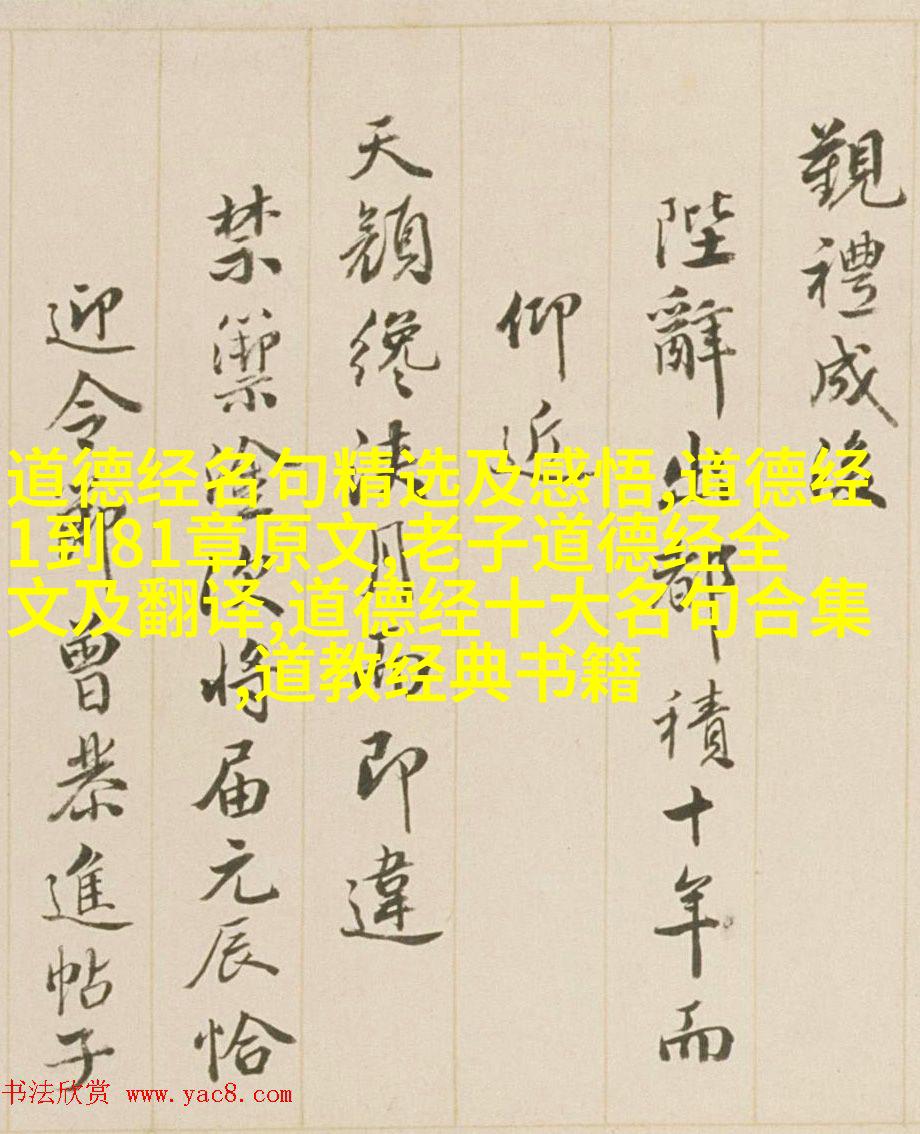 覲禮成後
陛辭出都積十年而
仰近
天顔纔浹月而即違
禁籞塗次將届元辰恰
迎令節曾恭進帖子
道德经名句精选及感悟,道德经
1到81章原文,老子道德经全
文及翻译,道德经十大名句合集
,道教经典书籍
书法欣赏 www.yac8.com